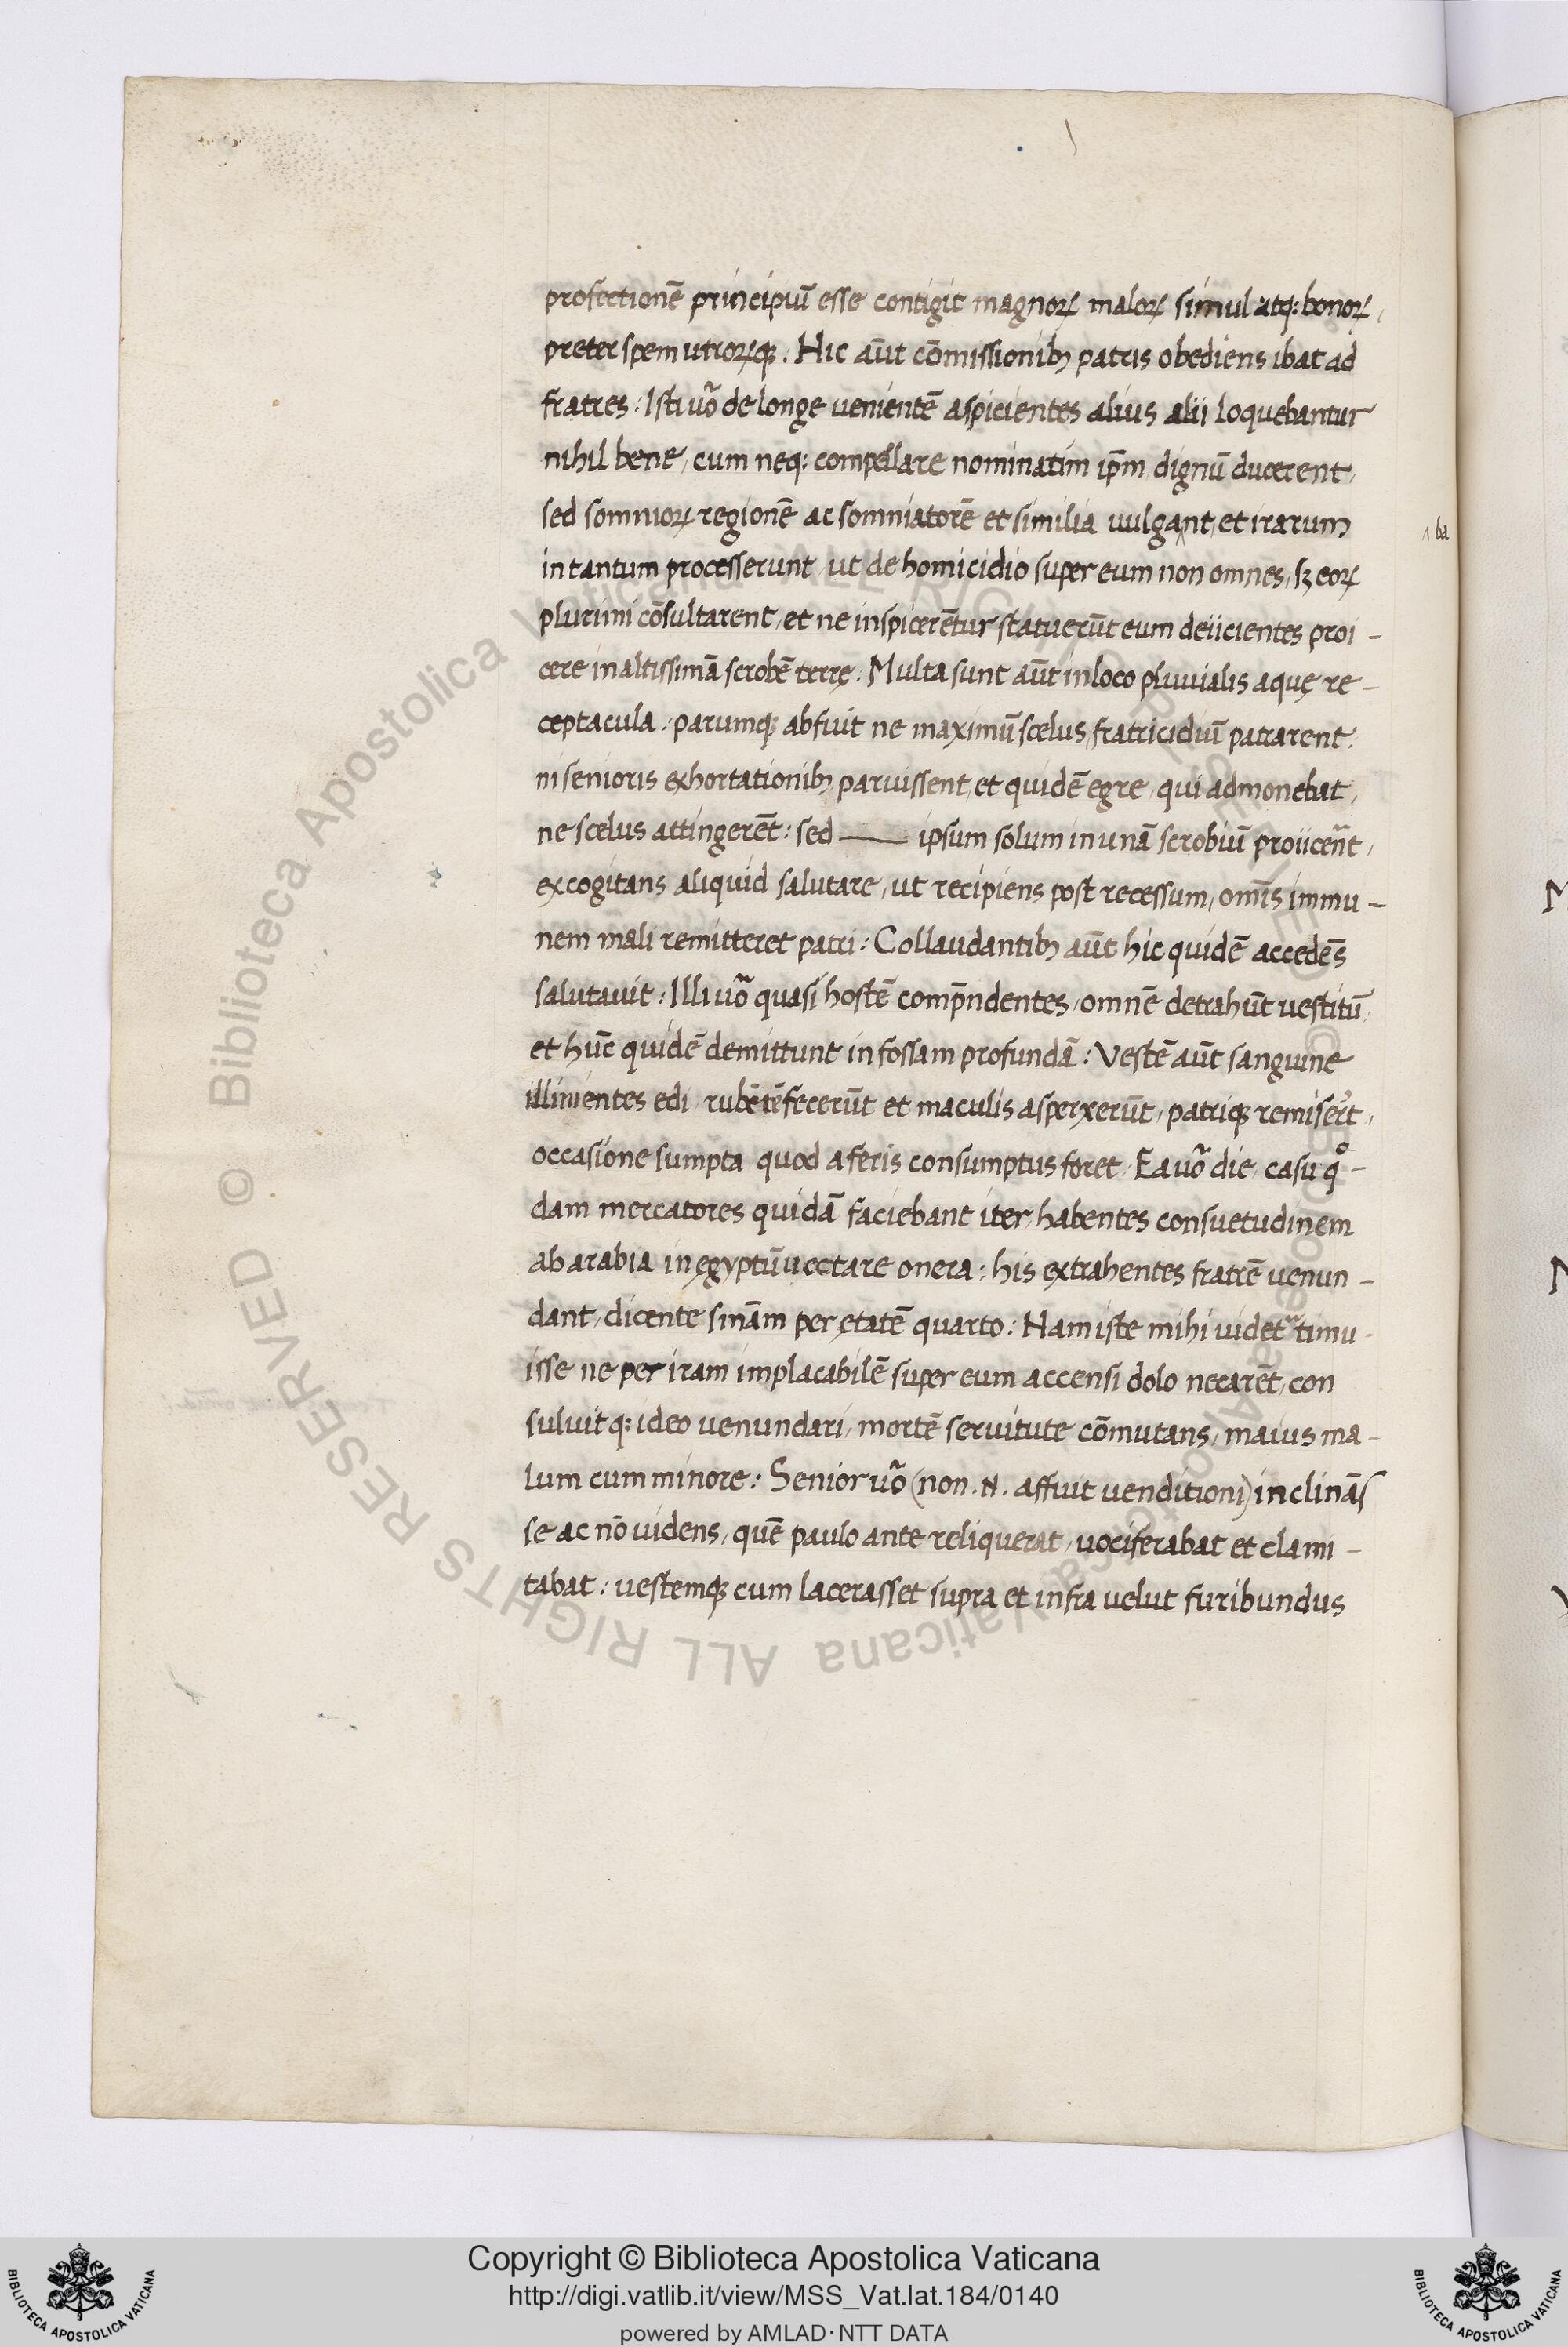 profectionē principiū esse contigit magnoꝝ maloꝝ simul atq: bonoꝝ,
preter spem utroꝝq;. Hic aūt cōmissionibꝫ patris obediens ibat ad
fratres: Isti uō de longe venientē aspicientes alius alii loquebantur
nihil bene, cum neq: compellare nominatim ip̄m dignū ducerent,
sed somnioꝝ regionē ac somniatorē et similia vulga^nt, et irarum
^ ba
in tantum processerunt, ut de homicidio super eum non omnes, sꝫ eoꝝ
plurimi cōsultarent, et ne inspicerētur statuerūt eum deiicientes proi-
cere in altissimā scrobē terrę: Multa sunt aūt in loco pluvialis aquę re-
ceptacula. parumq; abfuit ne maximū scelus, fratricidiū patrarent:
ni senioris exhortationibꝫ paruissent, et quidē egre, qui admonebat,
ne scelus attingerēt: sed —— ipsum solum in unā scrobiū proiicerēt,
excogitans aliquid salutare, ut recipiens post recessum, omīs immu-
nem mali remitteret patri: Collaudantibꝫ aūt hic quidē accedēs
salutavit: Illi uō quasi hostē comp̄ndentes, omnē detrahūt vestitū,
et hūc quidē demittunt in fossam profundā: Vestē aūt sanguine
illinientes edi rubētē fecerūt et maculis asperxerūt, patriq; remiserūt,
occasione sumpta quod a feris consumptus foret. Ea uō die, casu qͦ-
dam mercatores quidā faciebant iter, habentes consuetudinem
ab arabia in ęgyptū vectare onera: his extrahentes fratrē venun-
dant, dicente sinām per ętatē quarto: Nam iste mihi videtᷣ timu-
isse ne per iram implacabilē super eum accensi dolo necarēt, con
suluit q: ideo venundari, mortē servitute cōmutans, maius ma-
lum cum minore: Senior uō (non .N. affuit venditioni) inclinās
se ac nō videns, quē paulo ante reliquerat, vociferabat et clami-
tabat: vestemq; cum lacerasset supra et infra velut furibundus
© Biblioteca Apostolica Vaticana ALL RIGHTS RESERVED
Copyright © Biblioteca Apostolica Vaticana
http://digi.vatlib.it/view/MSS_Vat.lat.184/0140
powered by AMLAD·NTT DATA
BIBLIOTECA APOSTOLICA VATICANA
BIBLIOTECA APOSTOLICA VATICANA